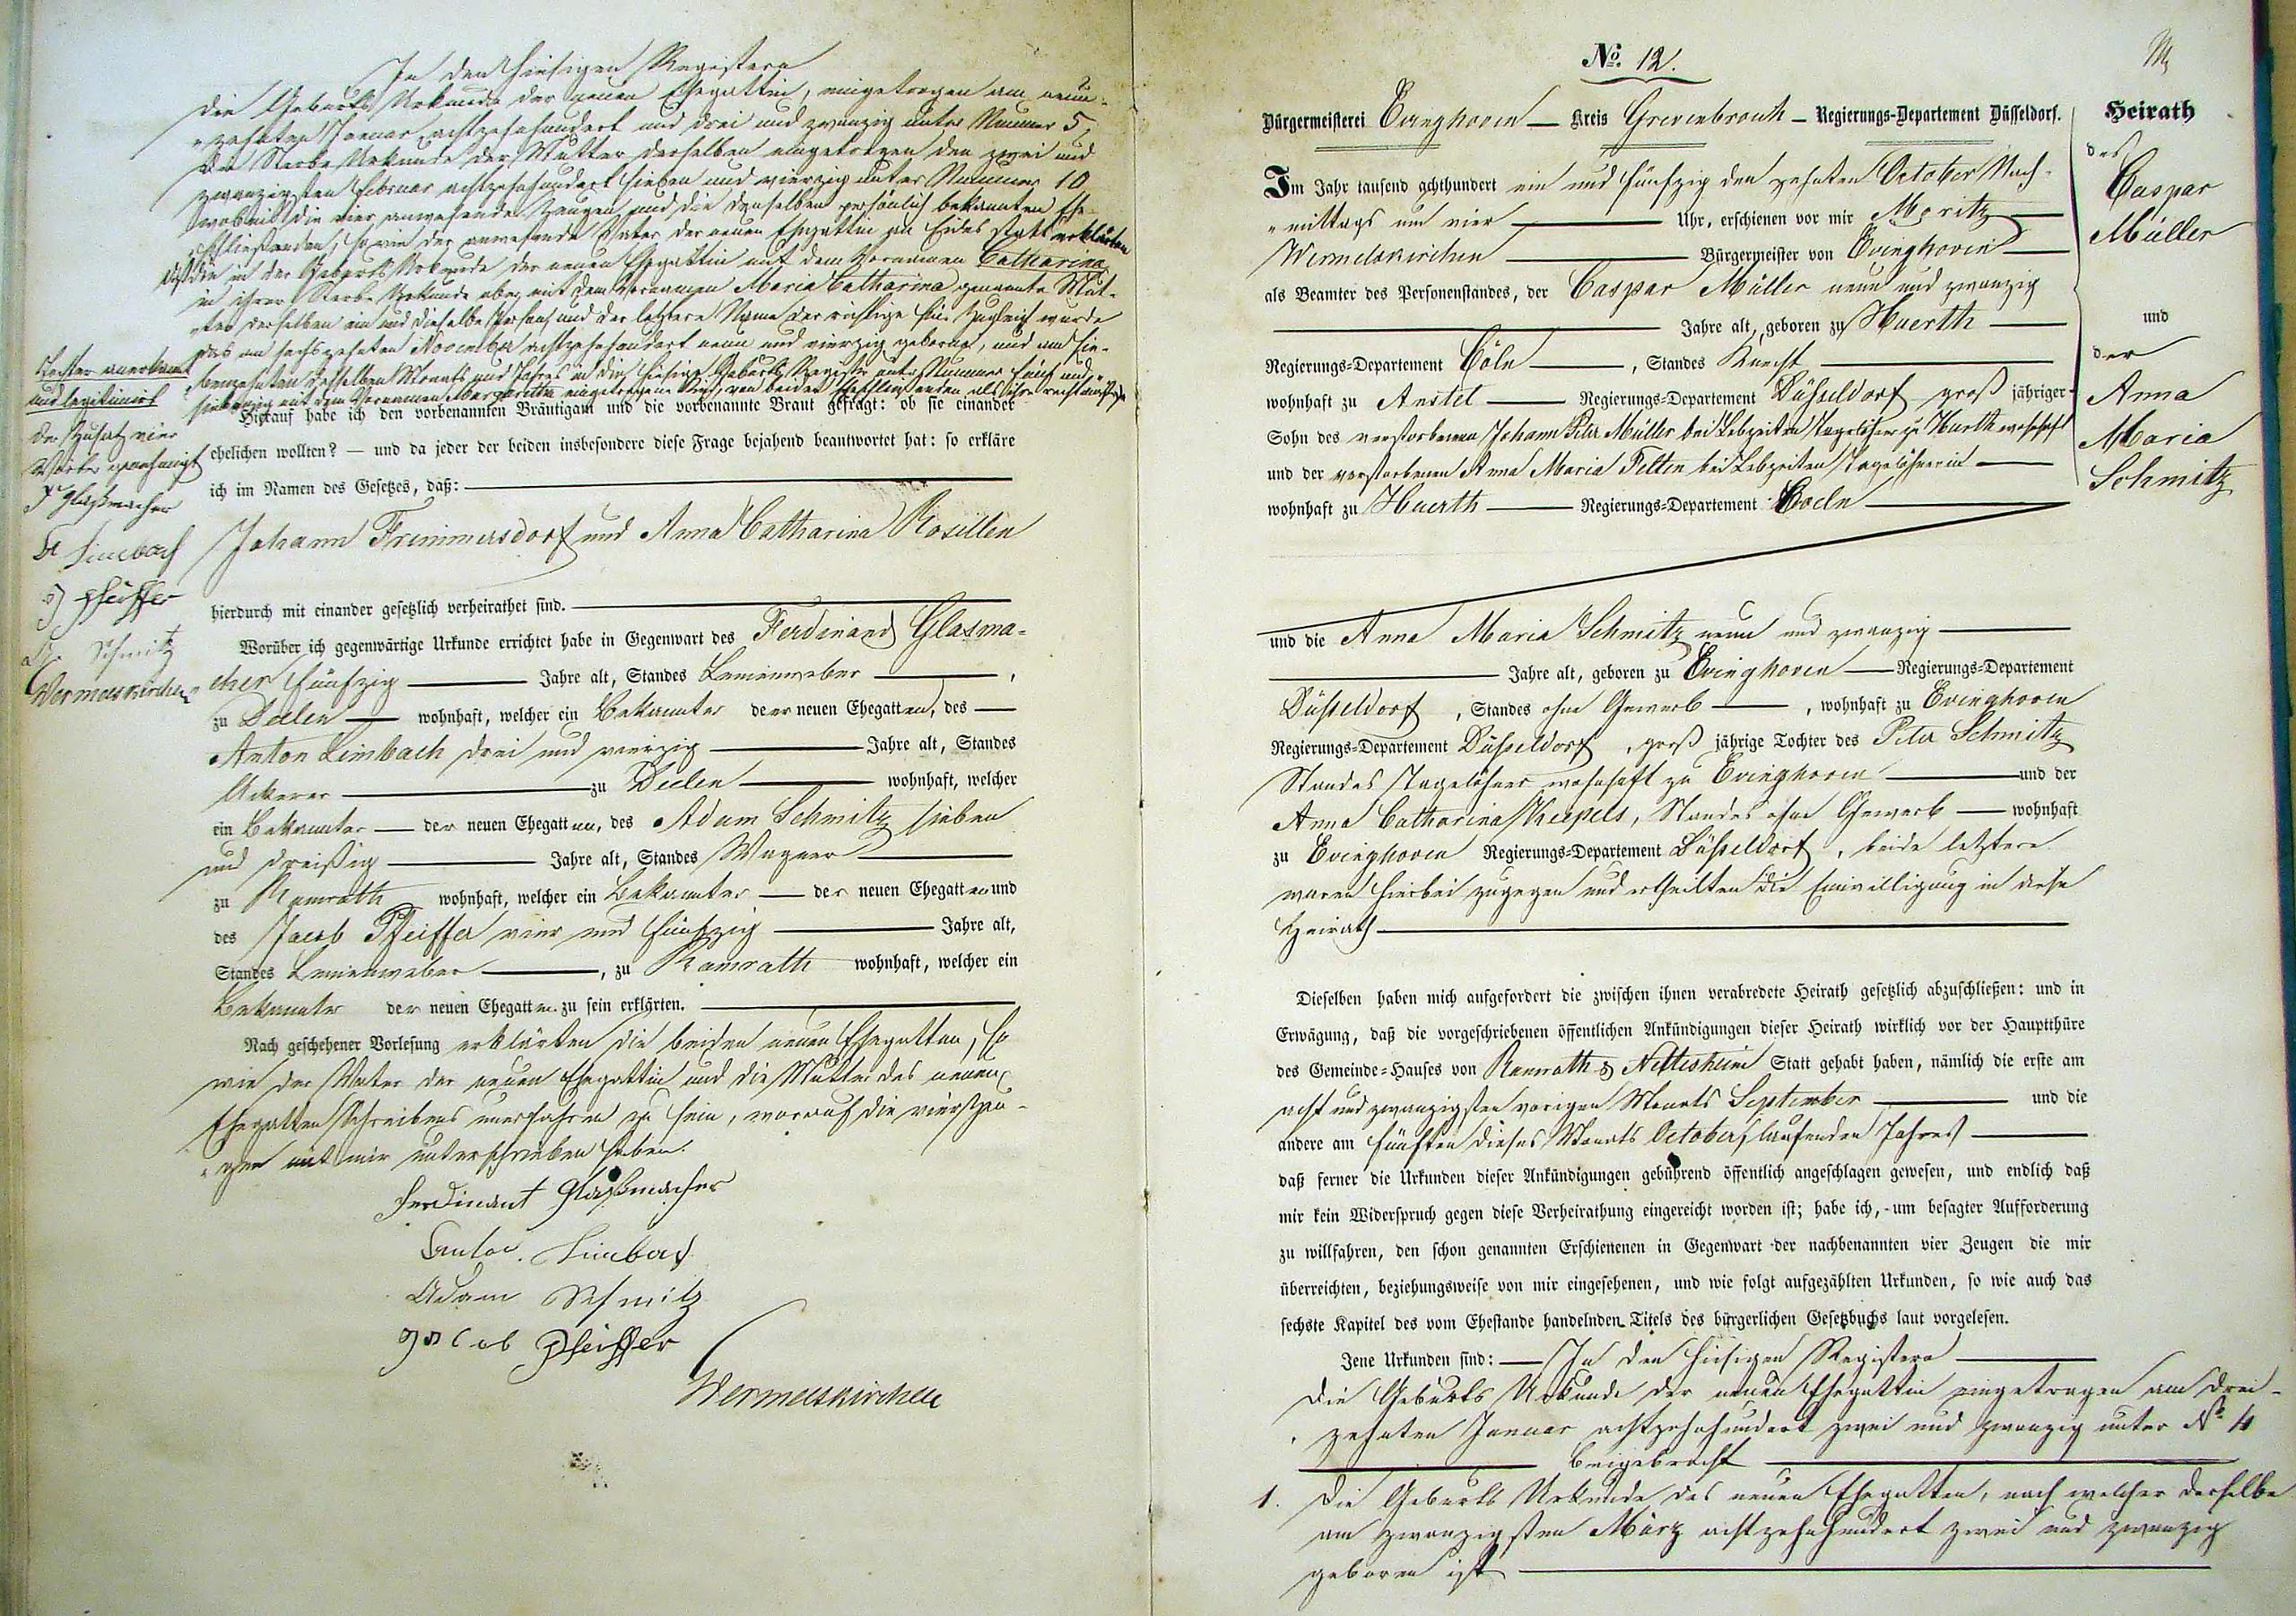 In den hiesigen Registern
Die Geburts Urkunde der neuen Ehegattin, eingetragen am neun-
„zehnten Januar achtzehnhundert und drei und zwanzig unter Nummer 5,
Die Sterbe Urkunde der Mutter derselben eingetragen den zwei und
zwanzigsten Februar achtzehnhundert sieben und vierzig unter Nummer 10
wobei die vier anwesenden Zeugen und die denselben persönlich bekannten Ehe-
schließenden, so wie der anwesende Vater der neuen Ehegattin an Eides statt erklärten
daß die in der Geburts Urkunde der neuen Ehegattin mit dem Vornamen Catharina
in ihrer Sterbe Urkunde aber mit dem Vornamen Maria Catharina genannte Mut-
„ter derselben ein und dieselbe Person, und der letztere Name der richtige sei. Zugleich wurde
das am sechszehnten November achtzehnhundert neun und vierzig geborne, und am sie-
benzehnten desselben Monats und Jahres in die hiesige Geburts Register unter Nummer fünf und
siebenzig mit dem Vornamen Margaretha eingetragene Kind, von beiden Eheschließenden als ihre rechtmäßige
Tochter anerkannt
und legitimirt
Der Zusatz vier
Worte genehmigt
F Glaßmacher
A Limbach
J Pfeiffer
Ad. Schmitz
Wermelskirchen
Hierauf habe ich den vorbenannten Bräutigam und die vorbenannte Braut gefragt: ob sie einander
ehelichen wollten? — und da jeder der beiden insbesondere diese Frage bejahend beantwortet hat: so erkläre
ich im Namen des Gesetzes, daß:
Johann Frimmersdorf und Anna Catharina Rosellen
hierdurch mit einander gesetzlich verheirathet sind.
Worüber ich gegenwärtige Urkunde errichtet habe in Gegenwart des Ferdinand Glasma-
cher fünfzig Jahre alt, Standes Leineweber,
zu Deelen wohnhaft, welcher ein Bekannter der neuen Ehegatten, des
Anton Limbach drei und vierzig Jahre alt, Standes
Ackerer zu Deelen wohnhaft, welcher
ein Bekannter der neuen Ehegatten, des Adam Schmitz sieben
und dreißig Jahre alt, Standes Wagner
zu Ramrath wohnhaft, welcher ein Bekannter der neuen Ehegatten und
des Jacob Pfeiffer vier und fünfzig Jahre alt,
Standes Leineweber, zu Ramrath wohnhaft, welcher ein
Bekannter der neuen Ehegatten zu sein erklärten.
Nach geschehener Vorlesung erklärten die beiden neuen Ehegatten, so
wie der Vater der neuen Ehegattin und die Mutter des neuen
Ehegatten Schreibens unerfahren zu sein, worauf die vier Zeu-
„gen mit mir unterschrieben haben.
Ferdinant Glaßmacher
Anton Limbach
Adam Schmitz
Jacob Pfeiffer
Wermelskirchen
No. 12.
Bürgermeisterei Evinghoven — Kreis Grevenbroich — Regierungs-Departement Düsseldorf.
Im Jahr tausend achthundert ein und fünfzig den zehnten October Nach-
„mittags um vier Uhr, erschienen vor mir Moritz
Wermelskirchen Bürgermeister von Evinghoven
als Beamter des Personenstandes, der Caspar Müller neun und zwanzig
Jahre alt, geboren zu Huerth
Regierungs-Departement Cöln, Standes Knecht
wohnhaft zu Anstel Regierungs-Departement Düsseldorf groß jähriger
Sohn des verstorbenen Johann Peter Müller bei Lebzeiten Tagelöhner zu Huerth wohnhaft
und der verstorbenen Anna Maria Felten bei Lebzeiten Tagelöhnerin
wohnhaft zu Huerth Regierungs-Departement Coeln
und die Anna Maria Schmitz neun und zwanzig
Jahre alt, geboren zu Evinghoven — Regierungs-Departement
Düsseldorf, Standes ohne Gewerb, wohnhaft zu Evinghoven
Regierungs-Departement Düsseldorf, groß jährige Tochter des Peter Schmitz
Standes Tagelöhner wohnhaft zu Evinghoven und der
Anna Catharina Keepels, Standes ohne Gewerb — wohnhaft
zu Evinghoven Regierungs-Departement Düsseldorf, beide letztere
waren hierbei zugegen und ertheilten die Einwilligung in diese
Heirath
Dieselben haben mich aufgefordert die zwischen ihnen verabredete Heirath gesetzlich abzuschließen: und in
Erwägung, daß die vorgeschriebenen öffentlichen Ankündigungen dieser Heirath wirklich vor der Hauptthüre
des Gemeinde-Hauses von Ramrath & Nettesheim Statt gehabt haben, nämlich die erste am
acht und zwanzigsten vorigen Monats September und die
andere am fünften dieses Monats October, laufenden Jahres
daß ferner die Urkunden dieser Ankündigungen gebührend öffentlich angeschlagen gewesen, und endlich daß
mir kein Widerspruch gegen diese Verheirathung eingereicht worden ist; habe ich, um besagter Aufforderung
zu willfahren, den schon genannten Erschienenen in Gegenwart der nachbenannten vier Zeugen die mir
überreichten, beziehungsweise von mir eingesehenen, und wie folgt aufgezählten Urkunden, so wie auch das
sechste Kapitel des vom Ehestande handelnden Titels des bürgerlichen Gesetzbuchs laut vorgelesen.
Jene Urkunden sind: — In den hiesigen Registern
Die Geburts Urkunde der neuen Ehegattin eingetragen am drei-
„zehnten Januar achtzehnhundert zwei und zwanzig unter No 4
beigebracht
1. Die Geburts Urkunde des neuen Ehegatten, nach welcher derselbe
am zwanzigsten März achtzehnhundert zwei und zwanzig
geboren ist
Heirath
des
Caspar
Müller
und
der
Anna
Maria
Schmitz